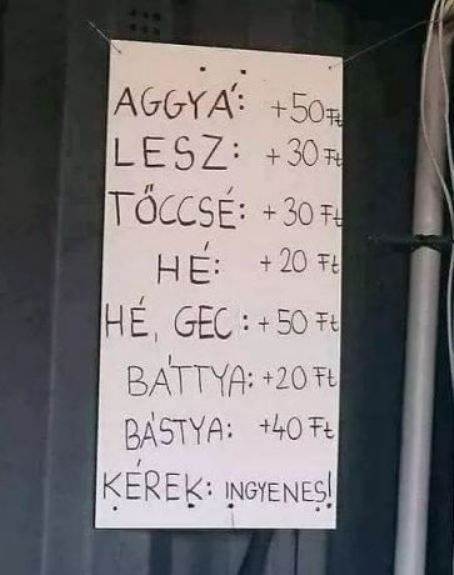 AGGYÁ: +50 Ft
LESZ: +30 Ft
TŐCCSÉ: +30 Ft
HÉ: +20 Ft
HÉ, GEC: +50 Ft
BÁTTYA: +20 Ft
BÁSTYA: +40 Ft
KÉREK: INGYENES!